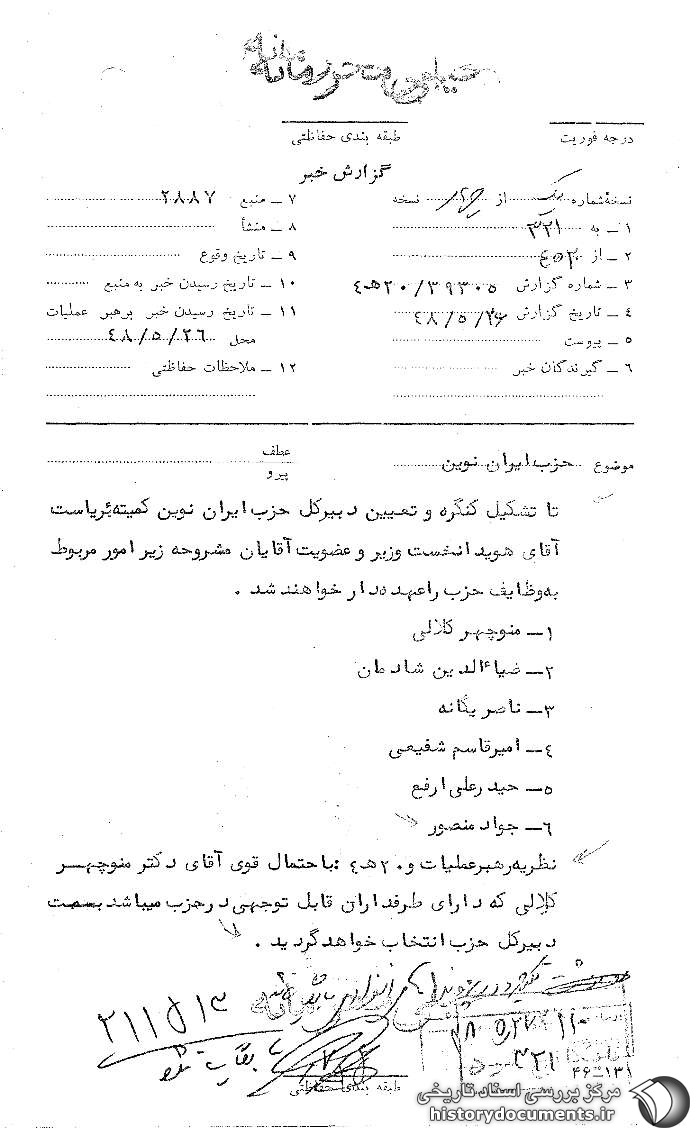 خیلی محرمانه
درجه فوریت
طبقه بندی حفاظتی
گزارش خبر
نسخهٔ شماره یک از نسخه
۱ ـ به ۳۲۱
۲ ـ از
۳ ـ شماره گزارش ۳۹۳۰۵/۲۰ه‍۴
۴ ـ تاریخ گزارش ۴۸/۵/۲۶
۵ ـ پیوست
۶ ـ گیرندگان خبر
۷ ـ منبع ۲۸۸۷
۸ ـ منشأ
۹ ـ تاریخ وقوع
۱۰ ـ تاریخ رسیدن خبر به منبع
۱۱ ـ تاریخ رسیدن خبر برهبر عملیات
محل ۴۸/۵/۲۶
۱۲ ـ ملاحظات حفاظتی
موضوع حزب ایران نوین
عطف
پیرو
تا تشکیل کنگره و تعیین دبیرکل حزب ایران نوین کمیته‌ئ بریاست
آقای هویدا نخست وزیر و عضویت آقایان مشروحه زیر امور مربوط
به‌وظایف حزب را عهده‌دار خواهند شد .
۱ـ منوچهر کلالی
۲ـ ضیاءالدین شادمان
۳ـ ناصر یگانه
۴ـ امیرقاسم شفیعی
۵ـ حیدرعلی ارفع
۶ـ جواد منصور
نظریه رهبر عملیات و ۲۰ه‍۴ : با احتمال قوی آقای دکتر منوچهر
کلالی که دارای طرفداران قابل توجهی در حزب میباشد بسمت
دبیرکل حزب انتخاب خواهد گردید .
۲۱۱۵۱۳
۳۲۱
۴۶-۱۳۱
طبقه بندی حفاظتی
مرکز بررسی اسناد تاریخی
historydocuments.ir